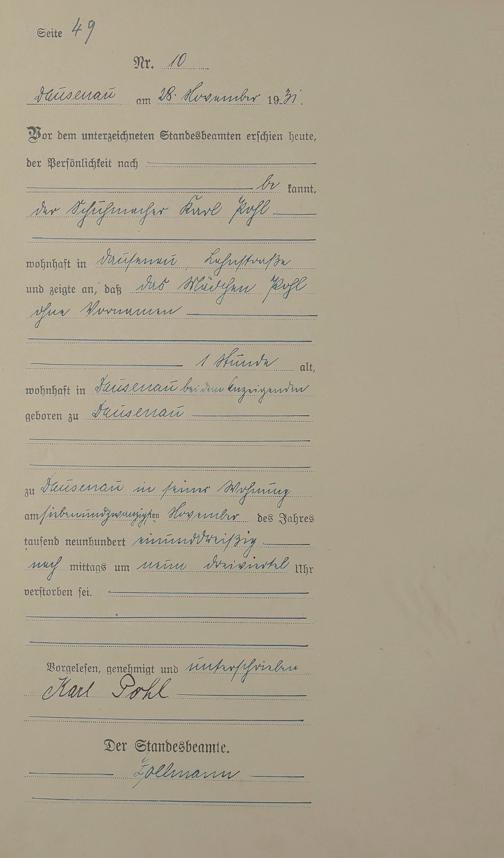 Seite 49
Nr. 10
Dausenau am 28. November 1931.
Vor dem unterzeichneten Standesbeamten erschien heute,
der Persönlichkeit nach
be kannt,
der Schuhmacher Karl Pohl
wohnhaft in Dausenau, Lahnstraße
und zeigte an, daß das Mädchen Pohl
ohne Vornamen
1 Stunde alt,
wohnhaft in Dausenau bei dem Anzeigenden
geboren zu Dausenau
zu Dausenau in seiner Wohnung
am siebenundzwanzigsten November des Jahres
tausend neunhundert einunddreißig
nach mittags um neun dreiviertel Uhr
verstorben sei.
Vorgelesen, genehmigt und unterschrieben
Karl Pohl
Der Standesbeamte.
Zollmann